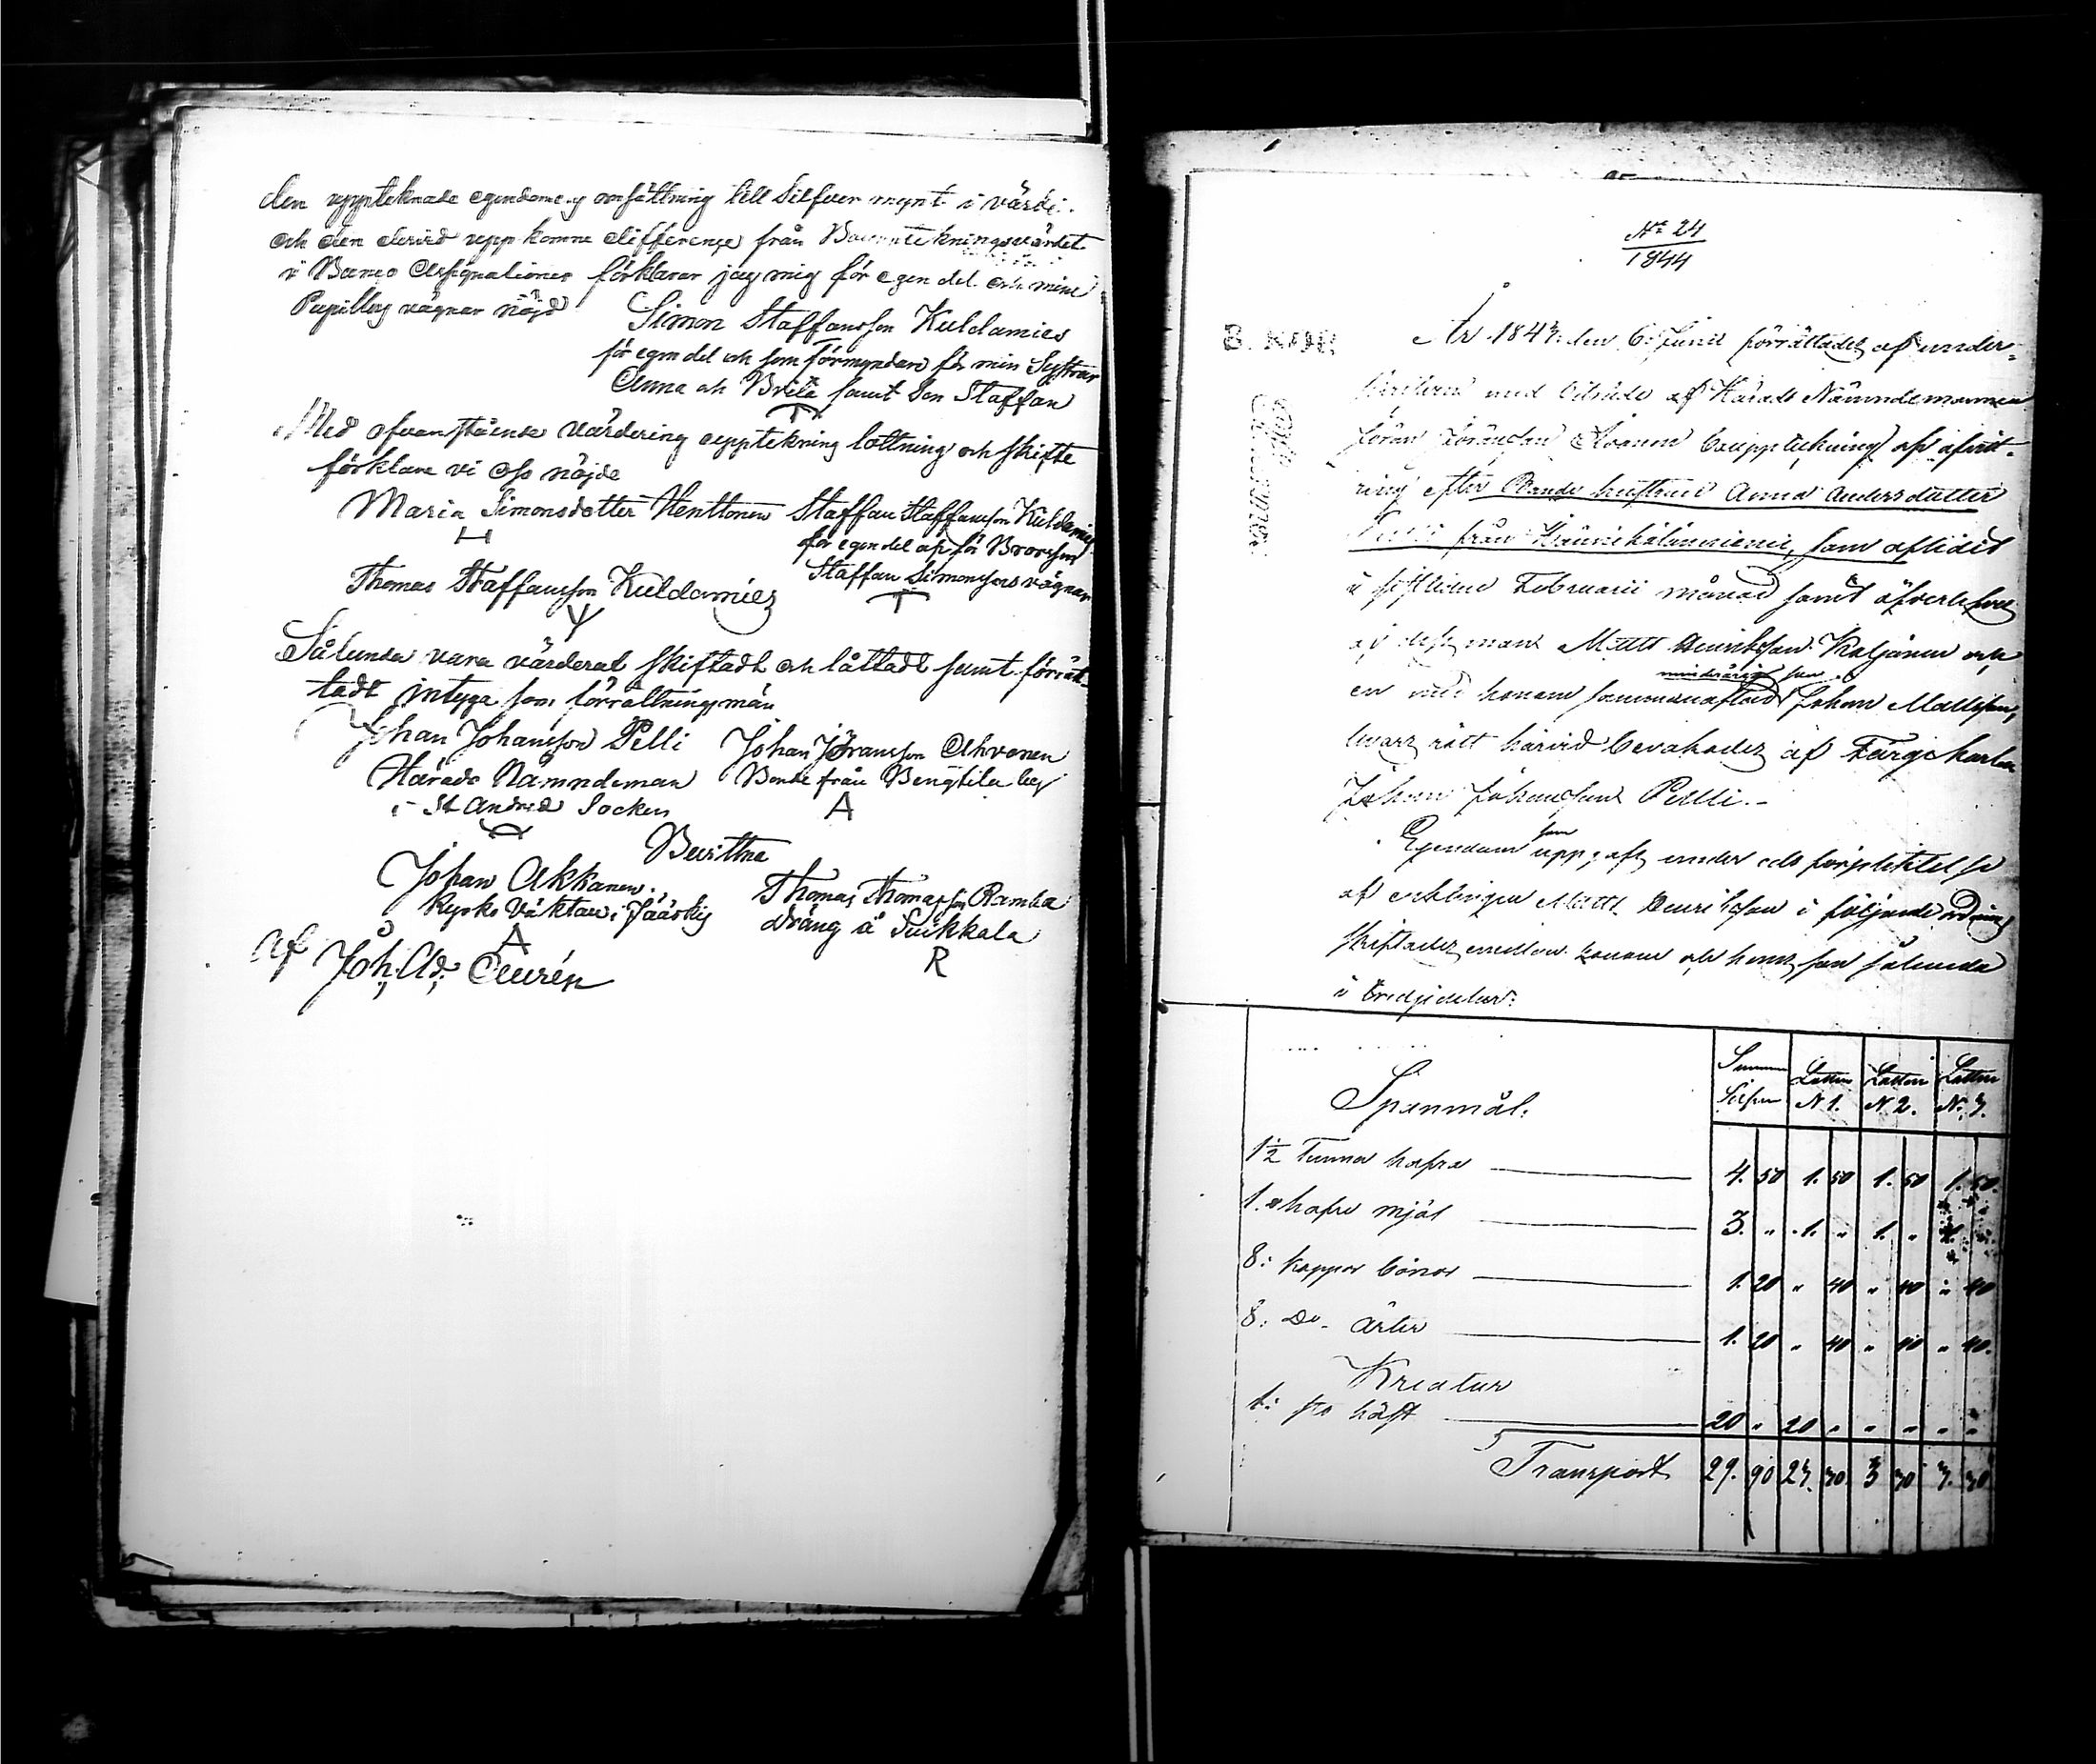 den upptecknade egendomens omsättning till Silfver mynt i värde.
och den derwid uppkomne differense från Bouppteknings värdet
i Banco Assignationer förklarar jag mig för egen del och mine
Pupillers vägnar nöjd
Simon Staffansson Kuldamies
för egen del och som förmyndare för min Systrar
Anna och Brita samt Son Staffan
Med ofvanstående värdering upptekning lottning och skifte
förklare vi oss nöjde
Maria Simonsdotter Henttonen
H
Staffan Staffansson Kuldamies
för egen del och för Brorson
Staffan Simonssons vägnar
T
Thomas Staffansson Kuldamies
Sålunda vara värderat skiftadt och låttadt samt förrät-
tadt intyga som förrättningsmän
Johan Johansson Pelli
Härads Nämndeman
i St Andreæ Socken
Johan Jöransson Ahvonen
Bonde från Bengtila by
A
Bevittna
Johan Akkanen.
Rysko Väktare i Jääskis
A
Thomas Thomasson Ramba
dräng å Suikkala
R
af Joh: Ad: Aurén
No 24
1844
År 1843. den 6: Junii förrättades af under-
med biträde af Härads Nämndemannen
Jöran Jöransson Ahvonen bouppteckning och afvitt-
ring efter Bonde hustrun Anna Andersdotter
från Kaunikalanniemi, som aflidit
i sistledne Februarii månad samt öfverlefves
af dess man Matts Henriksson Kaljunen och
minderårig son
en med honom sammanaflad Johan Mattsson,
hvars rätt härvid bevakades af Färgekarlen
Johan Johansson Pelli.-
som
Egendom uppgafs under eds förpliktelse
af enklingen Matts Henriksson i följande ordning
skiftades emellan honom och hans son sålunda
i tredjedelar:
Spanmål.
Summa Silfver Lotten N 1. Lotten N 2. Lotten N. 3.
1½ Tunna hafra 4. 50 1. 50 1. 50 1. 50.
1. " hafre mjöl 3. " 1. " 1. "
8: kappar bönor 1. 20 " 40 " 40 " 40
8: Do. ärter 1. 20 " 40 " 40 " 40.
Kreatur
1: sto häst 20 " 20 " " " " "
Transport 29. 90 23. 30. 3 30 3. 30